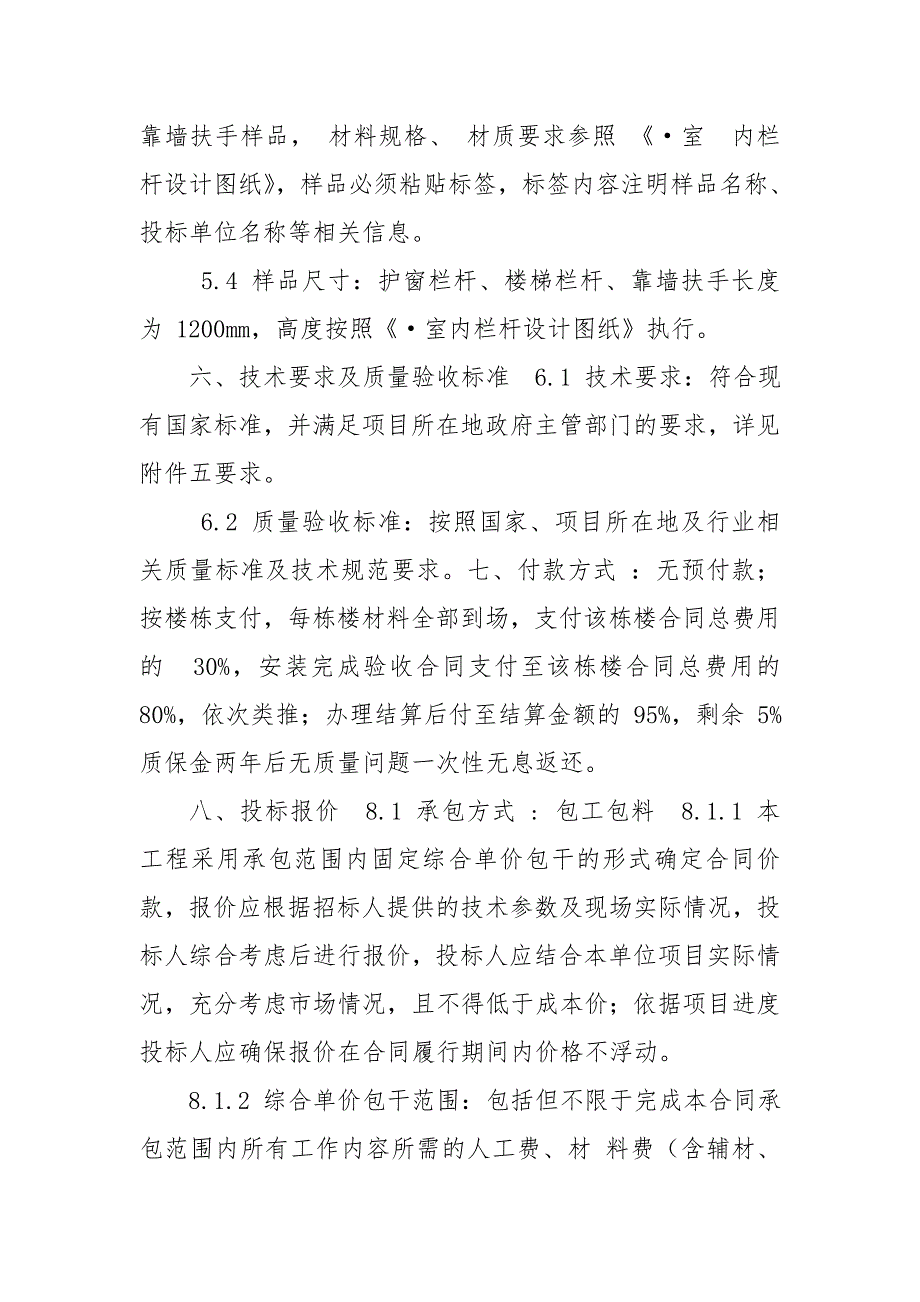 靠墙扶手样品， 材料规格、 材质要求参照 《·室  内栏
杆设计图纸》，样品必须粘贴标签，标签内容注明样品名称、
投标单位名称等相关信息。
5.4 样品尺寸：护窗栏杆、楼梯栏杆、靠墙扶手长度
为 1200mm，高度按照《·室内栏杆设计图纸》执行。
六、技术要求及质量验收标准  6.1 技术要求：符合现
有国家标准，并满足项目所在地政府主管部门的要求，详见
附件五要求。
6.2 质量验收标准：按照国家、项目所在地及行业相
关质量标准及技术规范要求。七、付款方式 ：无预付款；
按楼栋支付，每栋楼材料全部到场，支付该栋楼合同总费用
的  30%，安装完成验收合同支付至该栋楼合同总费用的
80%，依次类推；办理结算后付至结算金额的 95%，剩余 5%
质保金两年后无质量问题一次性无息返还。
八、投标报价  8.1 承包方式 ：包工包料  8.1.1 本
工程采用承包范围内固定综合单价包干的形式确定合同价
款，报价应根据招标人提供的技术参数及现场实际情况，投
标人综合考虑后进行报价，投标人应结合本单位项目实际情
况，充分考虑市场情况，且不得低于成本价；依据项目进度
投标人应确保报价在合同履行期间内价格不浮动。
8.1.2 综合单价包干范围：包括但不限于完成本合同承
包范围内所有工作内容所需的人工费、材 料费（含辅材、